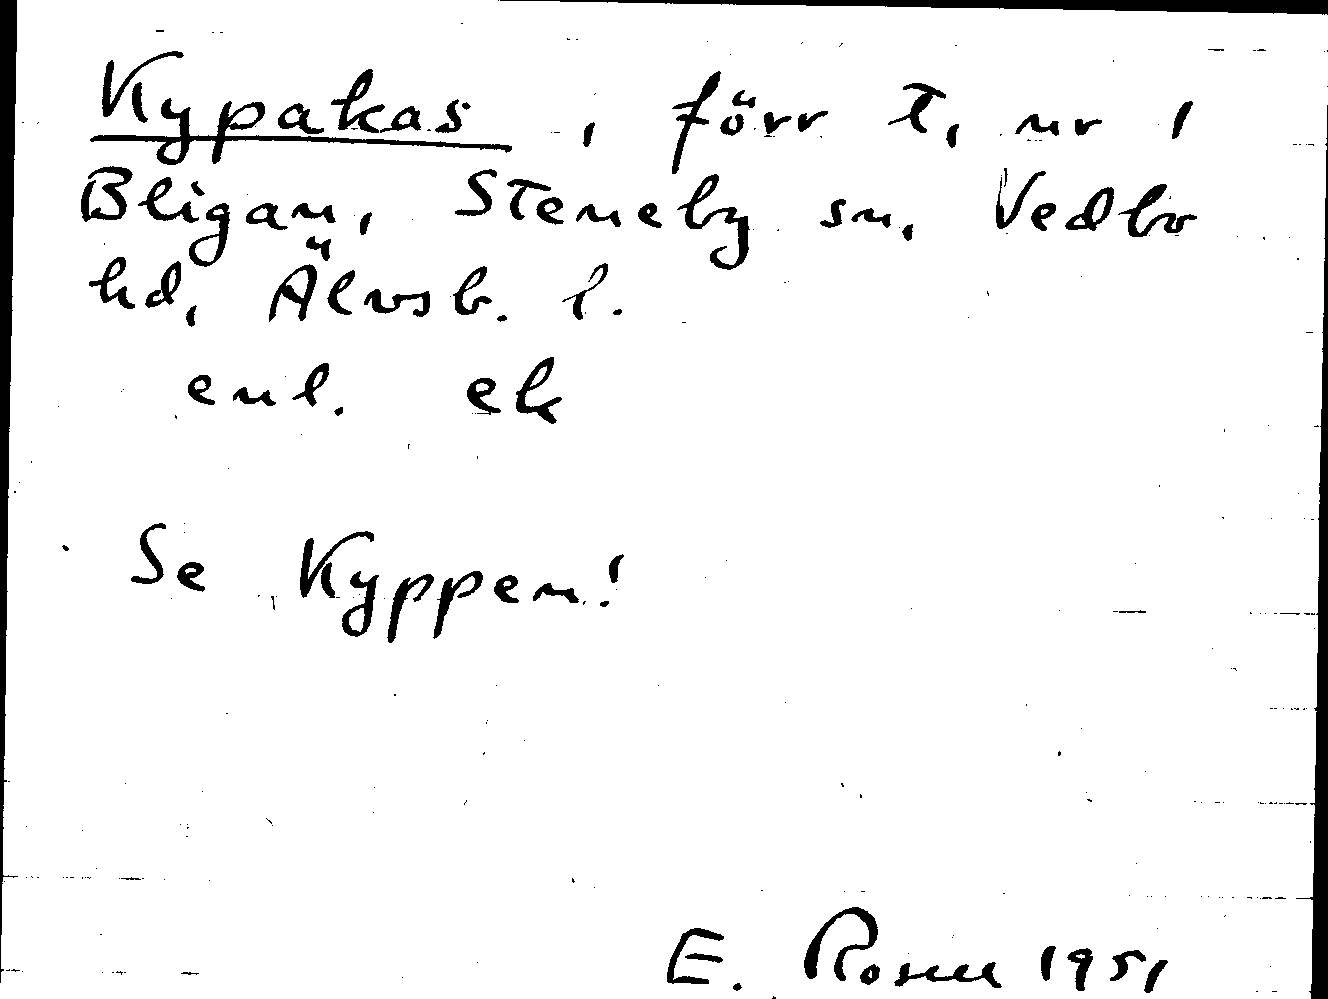 Kypakas, förr t, nr 1
Bligan, Steneby sn, Vedbo
hd, Älvsb. l.
enl. ek
Se Kyppen!
E. Rosell 1951